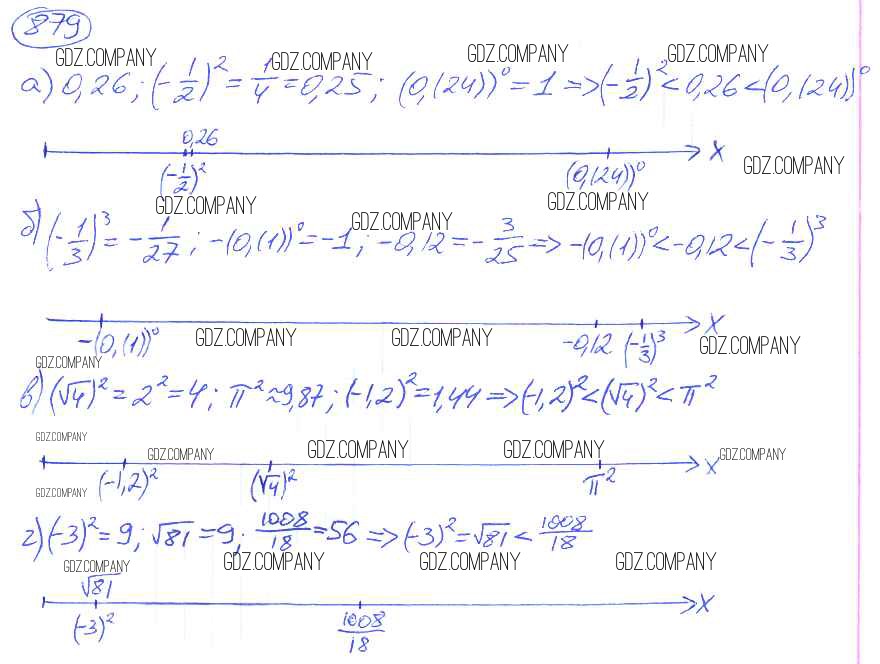 879
GDZ.COMPANY GDZ.COMPANY GDZ.COMPANY GDZ.COMPANY
а) 0,26; (-1/2)² = 1/4 = 0,25; (0,(24))⁰ = 1 => (-1/2)² < 0,26 < (0,(24))⁰
0,26
X
(-1/2)² (0,(24))⁰ GDZ.COMPANY
GDZ.COMPANY GDZ.COMPANY GDZ.COMPANY
б) (-1/3)³ = -1/27; -(0,(1))⁰ = -1; -0,12 = -3/25 => -(0,(1))⁰ < -0,12 < (-1/3)³
X
-(0,(1))⁰ GDZ.COMPANY GDZ.COMPANY -0,12 (-1/3)³ GDZ.COMPANY
GDZ.COMPANY
в) (√4)² = 2² = 4; π² ≈ 9,87; (-1,2)² = 1,44 => (-1,2)² < (√4)² < π²
GDZ.COMPANY GDZ.COMPANY GDZ.COMPANY GDZ.COMPANY
X GDZ.COMPANY
GDZ.COMPANY (-1,2)² (√4)² π²
г) (-3)² = 9; √81 = 9; 1008/18 = 56 => (-3)² = √81 < 1008/18
GDZ.COMPANY GDZ.COMPANY GDZ.COMPANY GDZ.COMPANY
√81
X
(-3)² 1008/18